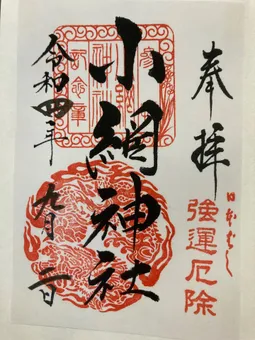 奉拝
強運厄除
小網神社
令和四年
九月二日